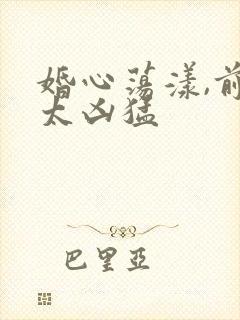 婚心荡漾,前
太凶猛
巴里亞